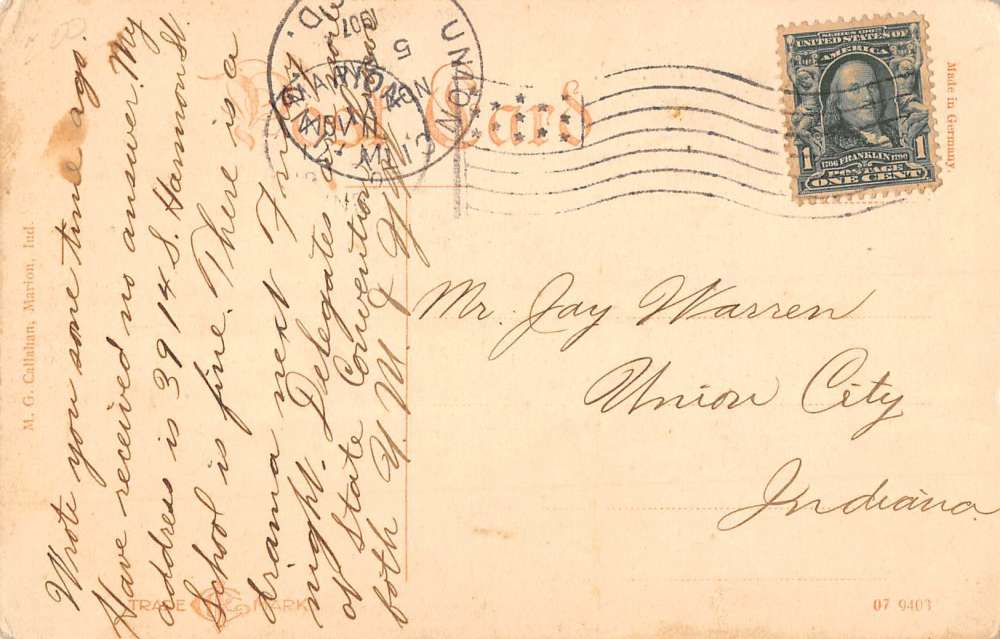 Wrote you some time ago.
Have received no answer. My
address is 3914 S. Harmon St.
School is fine. There is a
drama next Friday
night. Delegates
of State Convention
both Y. M. & Y. W.
Post Card
Mr. Jay Warren
Union City
Indiana
SERIES 1902
UNITED STATES OF
AMERICA
1 FRANKLIN 1
1706 1790
POSTAGE
ONE CENT
UNION CITY
IND.
NOV
5
1907
MARION
Made in Germany.
M. G. Callahan, Marion, Ind.
TRADE MARK
07 9403